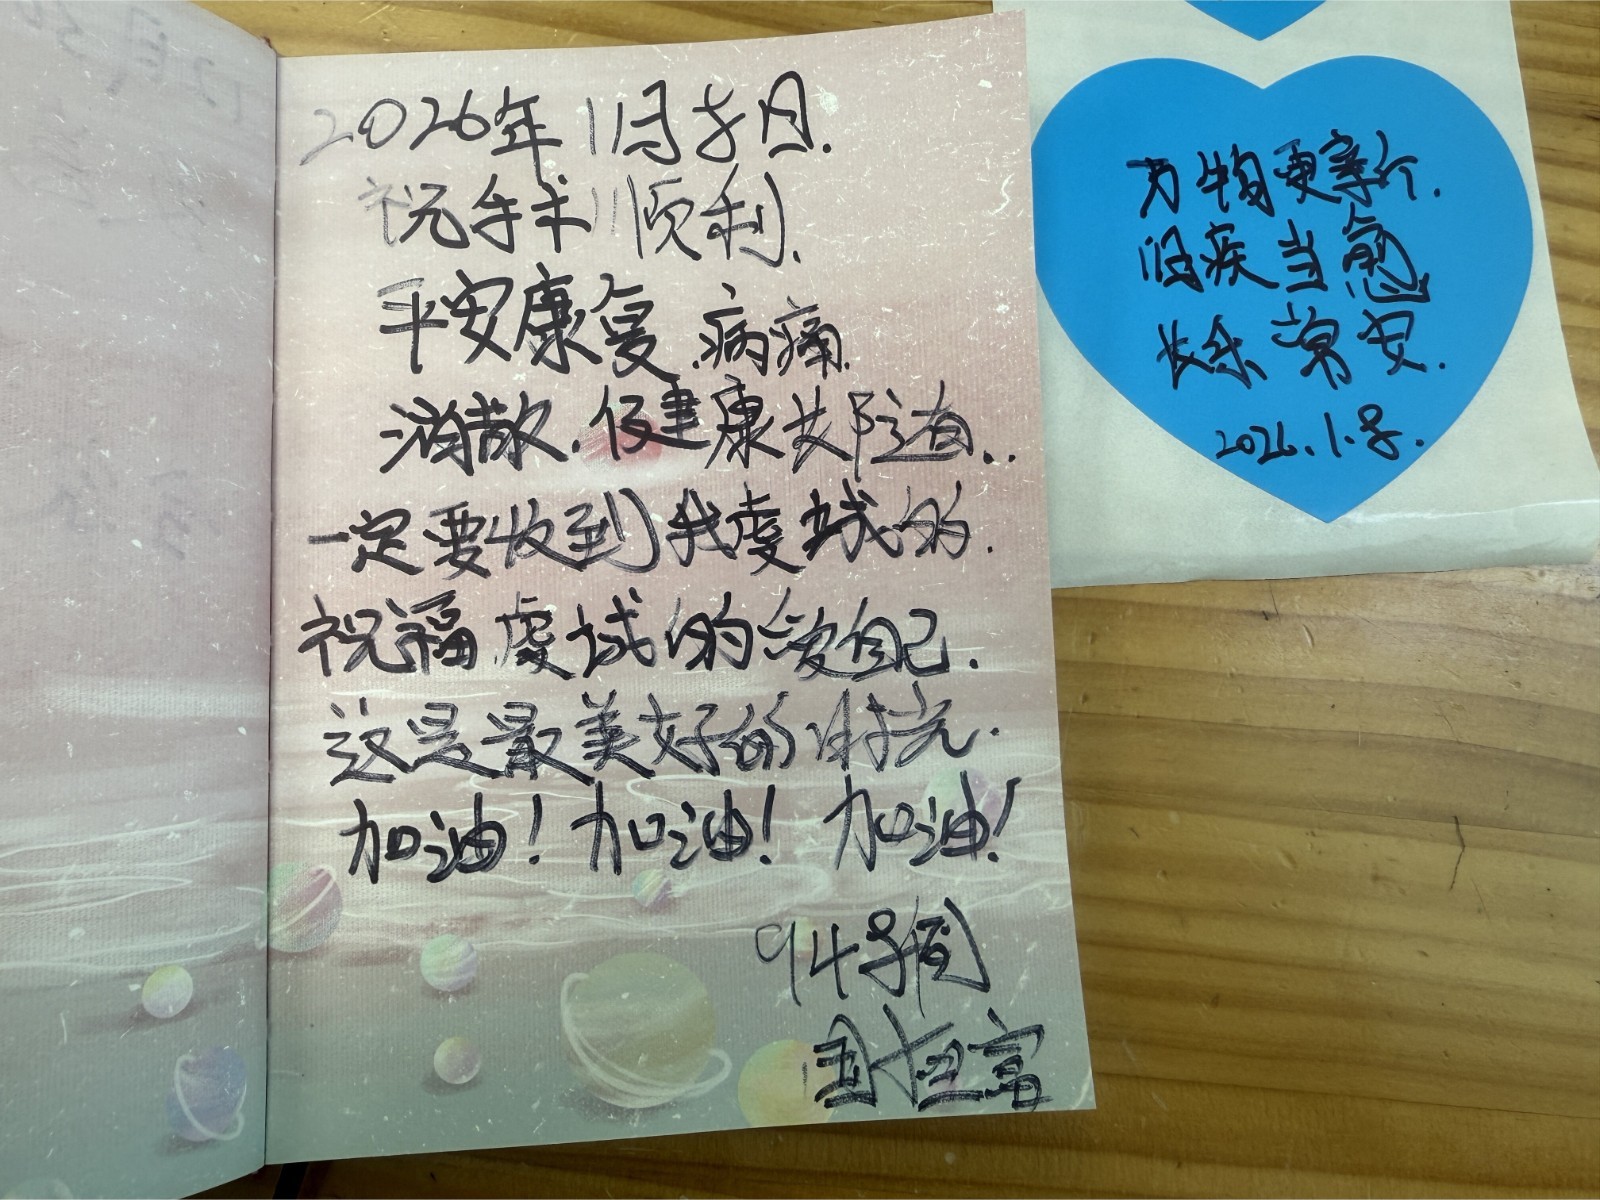 2026年1月子日.
祝手术顺利.
平安康复.病痛.
消散.健康长随..
一定要收到我虔诚的.
祝福.虔诚的爱自己.
这是最美好的时光.
加油！加油！加油！
94号周
国恒富
万物更新.
旧疾当愈
长乐常安.
2026.1.8.